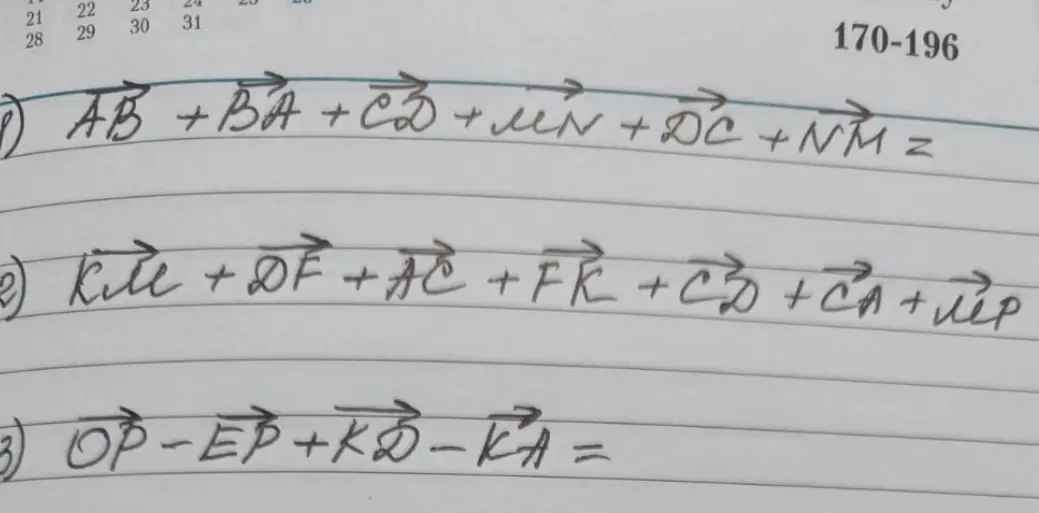 21 22 23 24 25 26
28 29 30 31
170-196
1) AB + BA + CD + MN + DC + NM =
2) KM + DF + AC + FK + CD + CA + MP
3) OP - EP + KD - KA =